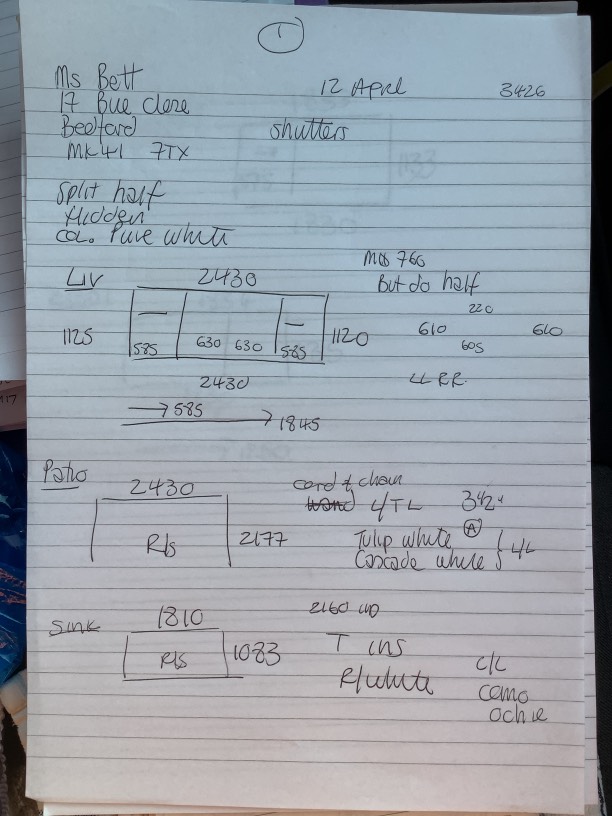 1
Ms Bett 12 April 3426
17 Bue close
Bedford shutters
MK41 7TX
Split half
Hidden
Col. Pure white
Liv 2430 Mos 760
But do half
220
1125 585 630 630 585 1120 610 610
605
2430 LL RR.
585
1845
Patio 2430 cord & chain
wand 4/TL 3½"
R/s 2177 Tulip white A
Cascade white 4/L
Sink 1810 2160
R/s 1083 T ins c/c
R/white camo
ochre